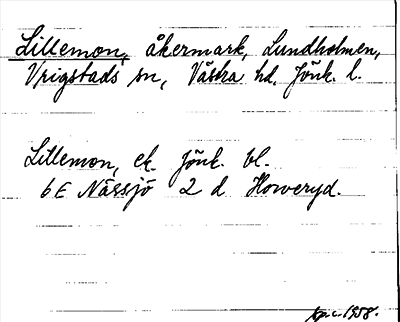 Lillemon, åkermark, Lundholmen,
Vrigstads sn, Västra hd, Jönk. l.
Lillemon, ek. Jönk. bl.
6E Nässjö 2 d Howeryd.
1958.